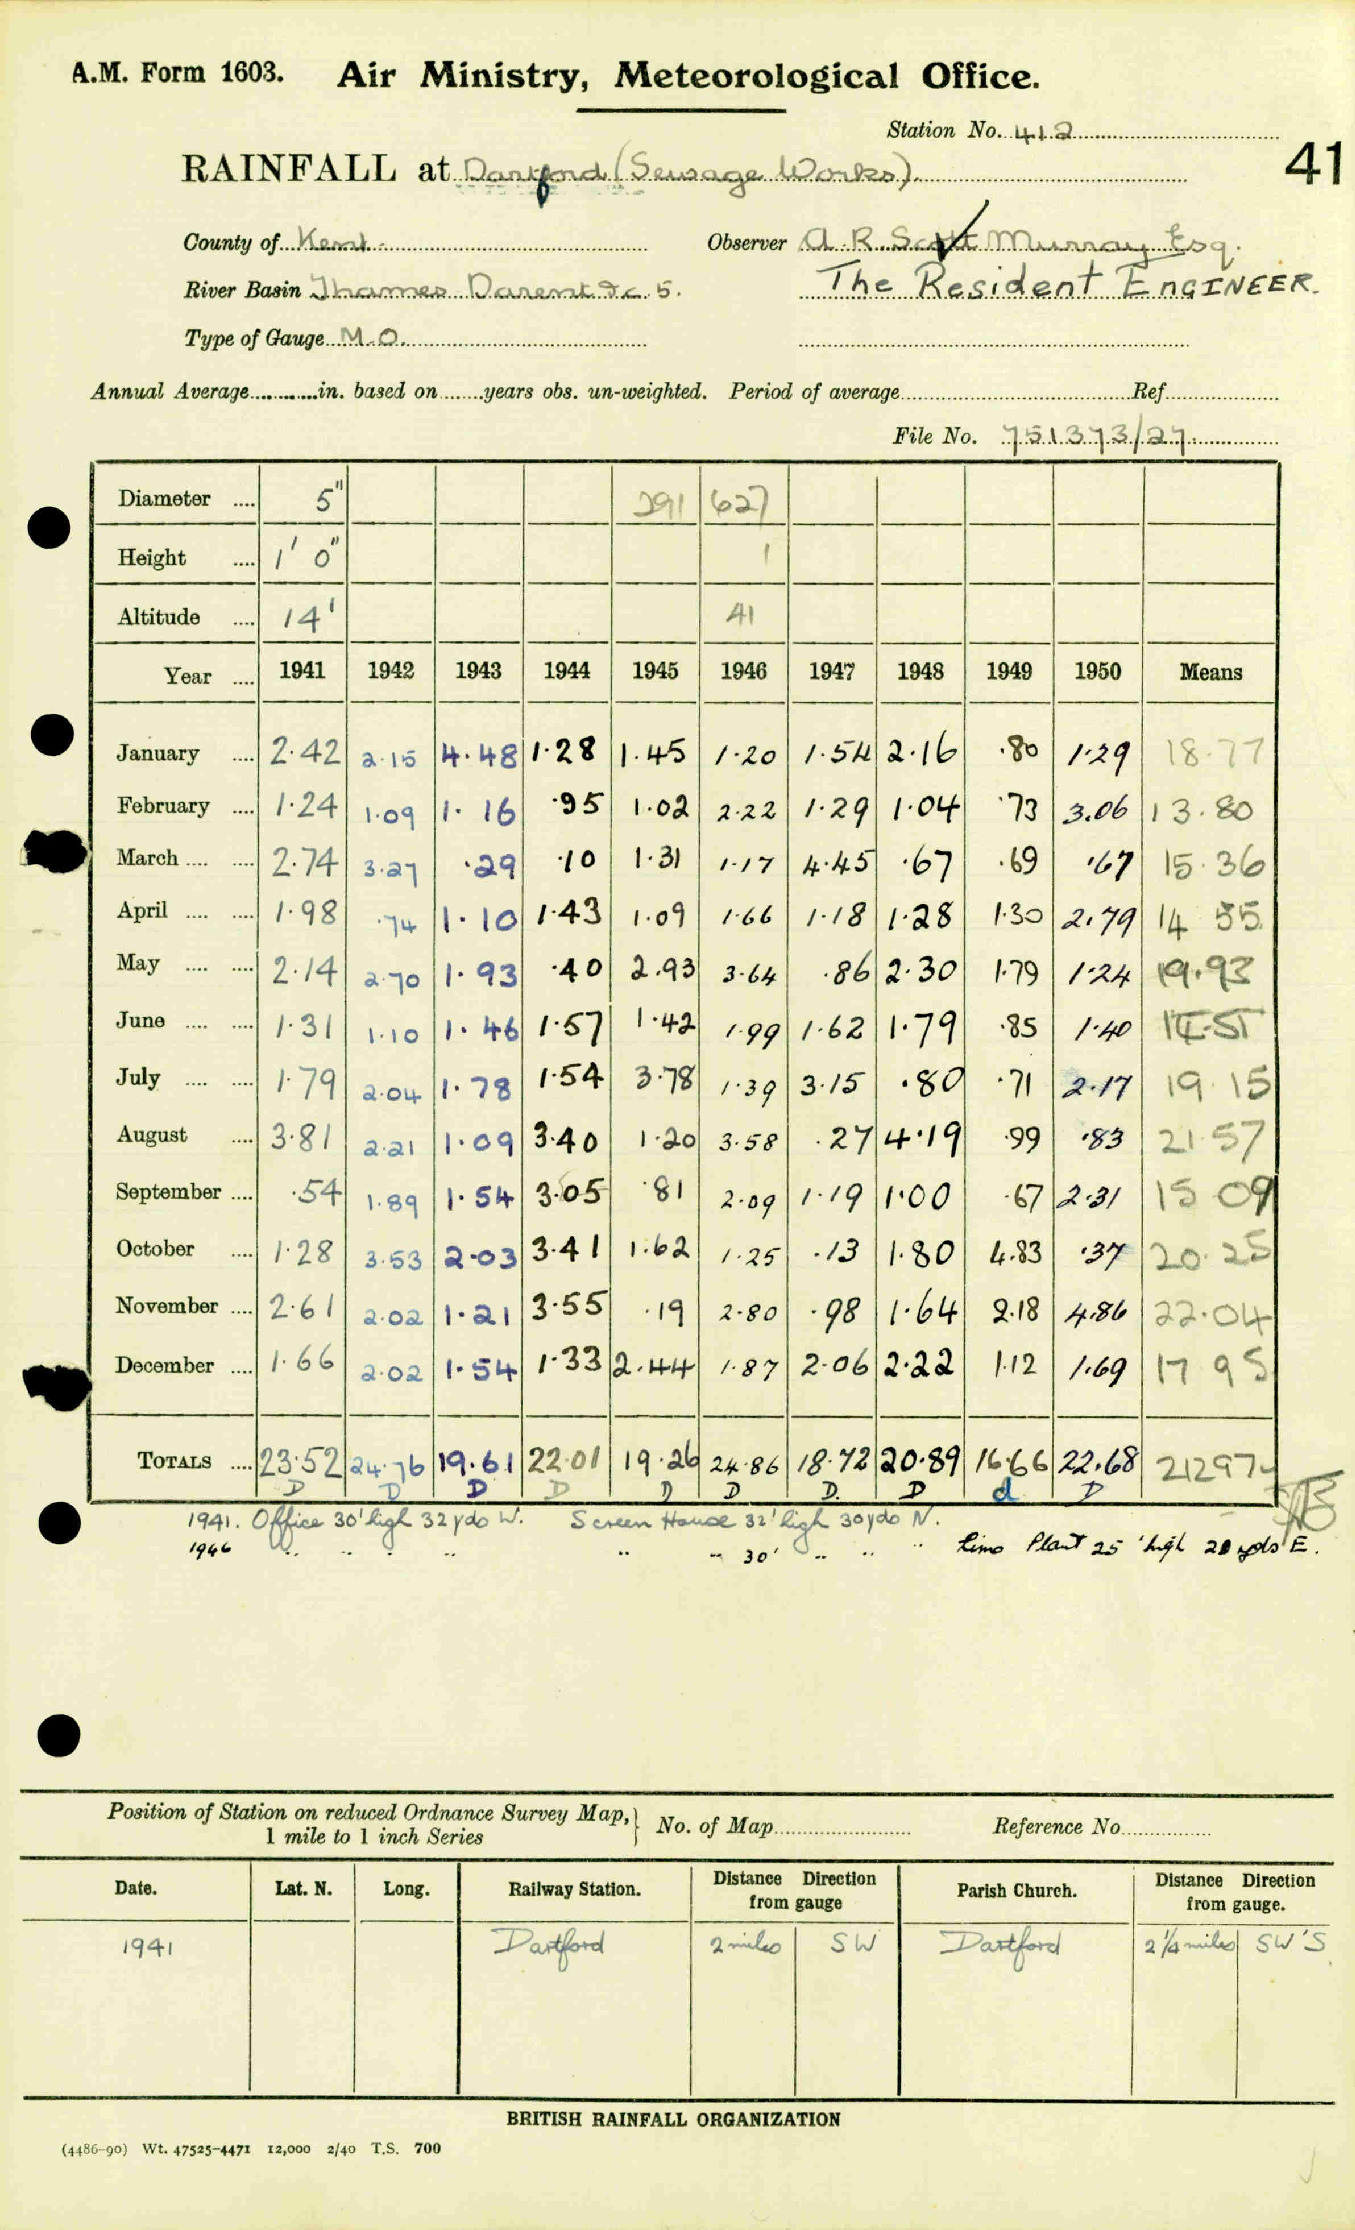 A.M. Form 1603. Air Ministry, Meteorological Office.
Station No. 412
41
RAINFALL at Dartford (Sewage Works)
County of Kent. Observer A. R. Scott Murray Esq.
River Basin Thames Darent &c 5. The Resident EnGINEER.
Type of Gauge M.O.
Annual Average in. based on years obs. un-weighted. Period of average Ref.
File No. 751373/27
Diameter .... 5" 291 627
Height .... 1' 0" 1
Altitude .... 14' 41
Year .... 1941 1942 1943 1944 1945 1946 1947 1948 1949 1950 Means
January .... 2.42 2.15 4.48 1.28 1.45 1.20 1.54 2.16 .80 1.29 18.77
February .... 1.24 1.09 1.16 .95 1.02 2.22 1.29 1.04 .73 3.06 13.80
March .... .... 2.74 3.27 .29 .10 1.31 1.17 4.45 .67 .69 .67 15.36
April .... .... 1.98 .74 1.10 1.43 1.09 1.66 1.18 1.28 1.30 2.79 14 55
May .... .... 2.14 2.70 1.93 .40 2.93 3.64 .86 2.30 1.79 1.24 19.93
June .... .... 1.31 1.10 1.46 1.57 1.42 1.99 1.62 1.79 .85 1.40 14.51
July .... .... 1.79 2.04 1.78 1.54 3.78 1.39 3.15 .80 .71 2.17 19.15
August .... 3.81 2.21 1.09 3.40 1.20 3.58 .27 4.19 .99 .83 21.57
September .... .54 1.89 1.54 3.05 .81 2.09 1.19 1.00 .67 2.31 15 09
October .... 1.28 3.53 2.03 3.41 1.62 1.25 .13 1.80 4.83 .37 20.25
November .... 2.61 2.02 1.21 3.55 .19 2.80 .98 1.64 2.18 4.86 22.04
December .... 1.66 2.02 1.54 1.33 2.44 1.87 2.06 2.22 1.12 1.69 17 95
TOTALS .... 23.52 24.76 19.61 22.01 19.26 24.86 18.72 20.89 16.66 22.68 21297
D D D D D D D. D d D
1941. Office 30' high 32 yds W. Screen House 32' high 30 yds N.
1946 " " " " " " 30' " " " Lime Plant 25' high 20 yds E.
Position of Station on reduced Ordnance Survey Map, 1 mile to 1 inch Series } No. of Map Reference No.
Date. Lat. N. Long. Railway Station. Distance Direction from gauge Parish Church. Distance Direction from gauge.
1941 Dartford 2 miles SW Dartford 2 1/4 miles SW'S
BRITISH RAINFALL ORGANIZATION
(4486-90) Wt. 47525-4471 12,000 2/40 T.S. 700